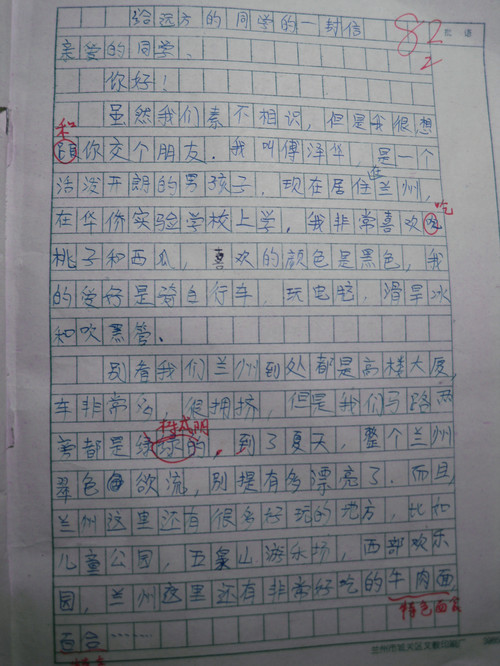 给远方的同学的一封信
82
批语
亲爱的同学、
你好!
虽然我们素不相识,但是我很想
和
你交个朋友.我叫傅泽华,是一个
活泼开朗的男孩子.现在居住在兰州,
吃
在华侨实验学校上学,我非常喜欢
桃子和西瓜,喜欢的颜色是黑色,我
的爱好是骑自行车,玩电脑,滑旱冰
和吹黑管、
别看我们兰州到处都是高楼大厦,
车非常多,很拥挤,但是我们马路两
树成朋
旁都是绿绿的,到了夏天,整个兰州
翠色欲流,别提有多漂亮了.而且,
兰州这里还有很多好玩的地方,比如
儿童公园,五泉山游乐场,西部欢乐
园,兰州这里还有非常好吃的牛肉面
特色面食
百合……
兰州市城关区文教印刷厂